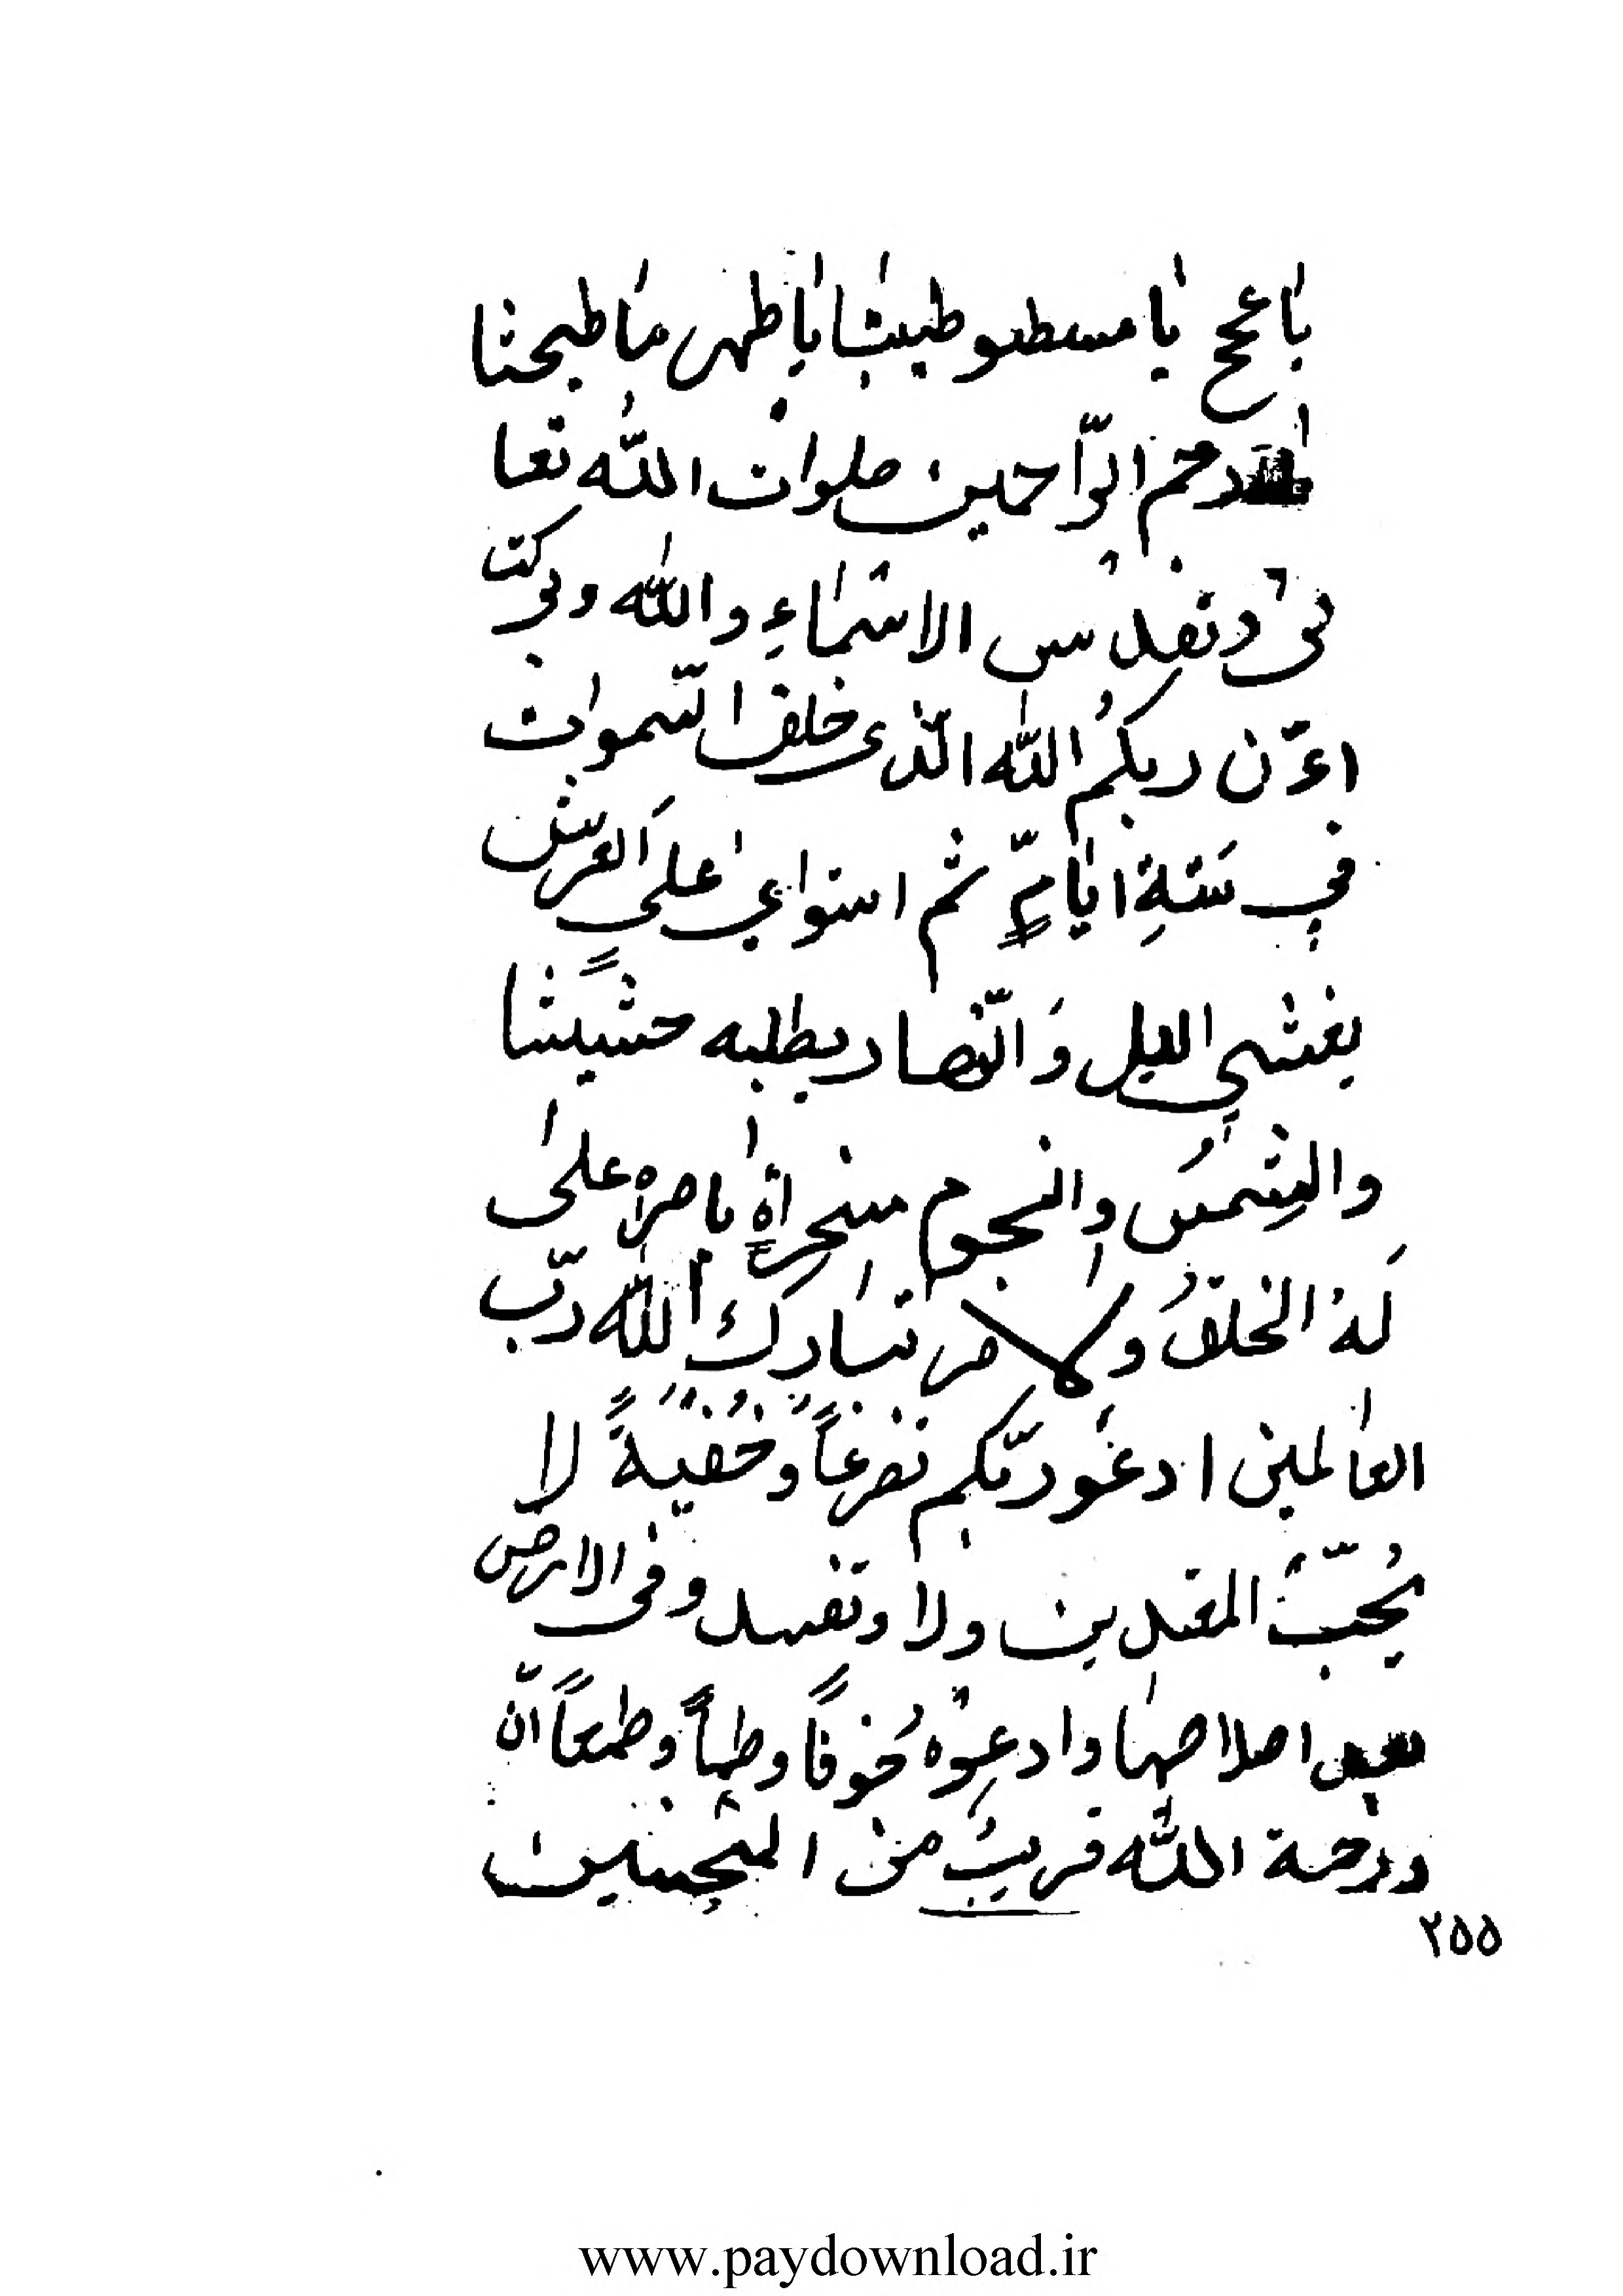 يا عحج يا مسطو طيثا يا طهر ما طيحثا
رحم الرّاحمين صلوات اللّه تعا
لى و تقدس الاسماءِ واللّه وبركت
اءنّ ربكمُ اللّه الّذى خلق السّموات
في سَتةِ ايّامٍ ثم استواى على العرش
يغشي الليل وَالنّهار يطلبه حشيشًا
والشِمسُ والنجوم مسخراةٍ بامره على
لَهُ الخلقُ و الامر تبارك اللّه ربّ
العالمين ادعُو ربّكم تضرعاً وخُفيةً لا
يُحبّ المعتدين ولا وتفسد و فى الارض
بعد اصلاصها وادعوه خَوفاً وطمأً وطمعاً انّ
ورحمة اللّه قريبُ من المحسنين
۲۵۵
www.paydownload.ir